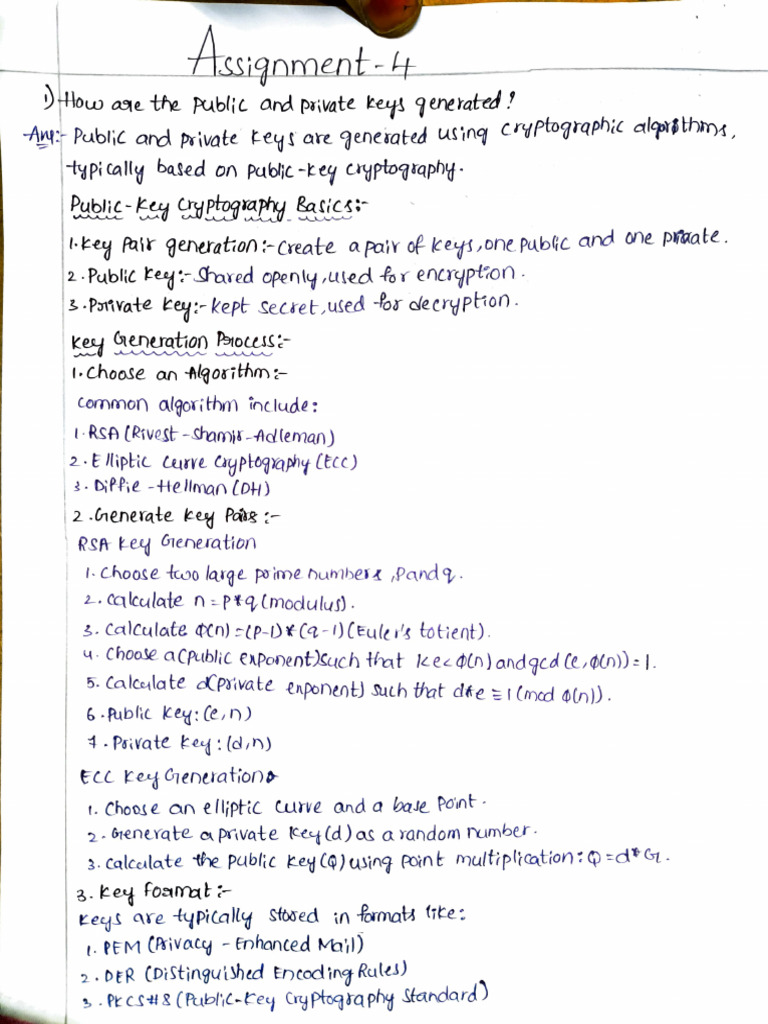 Assignment-4
1) How are the public and private keys generated?
Ans:- Public and private keys are generated using cryptographic algorithms,
typically based on public-key cryptography.
Public-Key Cryptography Basics:-
1. Key Pair generation:- Create a pair of keys, one public and one private.
2. Public Key:- Shared openly, used for encryption.
3. Private Key:- Kept secret, used for decryption.
Key Generation Process:-
1. Choose an Algorithm:-
Common algorithm include:
1. RSA (Rivest-Shamir-Adleman)
2. Elliptic Curve Cryptography (ECC)
3. Diffie-Hellman (DH)
2. Generate Key Pairs:-
RSA Key Generation
1. Choose two large prime numbers, p and q.
2. Calculate n = p*q (modulus).
3. Calculate φ(n) = (p-1)*(q-1) (Euler's totient).
4. Choose a (public exponent) such that 1<e<φ(n) and gcd(e, φ(n)) = 1.
5. Calculate d (private exponent) such that d*e ≡ 1 (mod φ(n)).
6. Public Key: (e, n)
7. Private Key: (d, n)
ECC Key Generation
1. Choose an elliptic curve and a base point.
2. Generate a private key (d) as a random number.
3. Calculate the public key (Q) using point multiplication: Q = d*G.
3. Key Format:-
Keys are typically stored in formats like:
1. PEM (Privacy-Enhanced Mail)
2. DER (Distinguished Encoding Rules)
3. PKCS#8 (Public-Key Cryptography Standard)